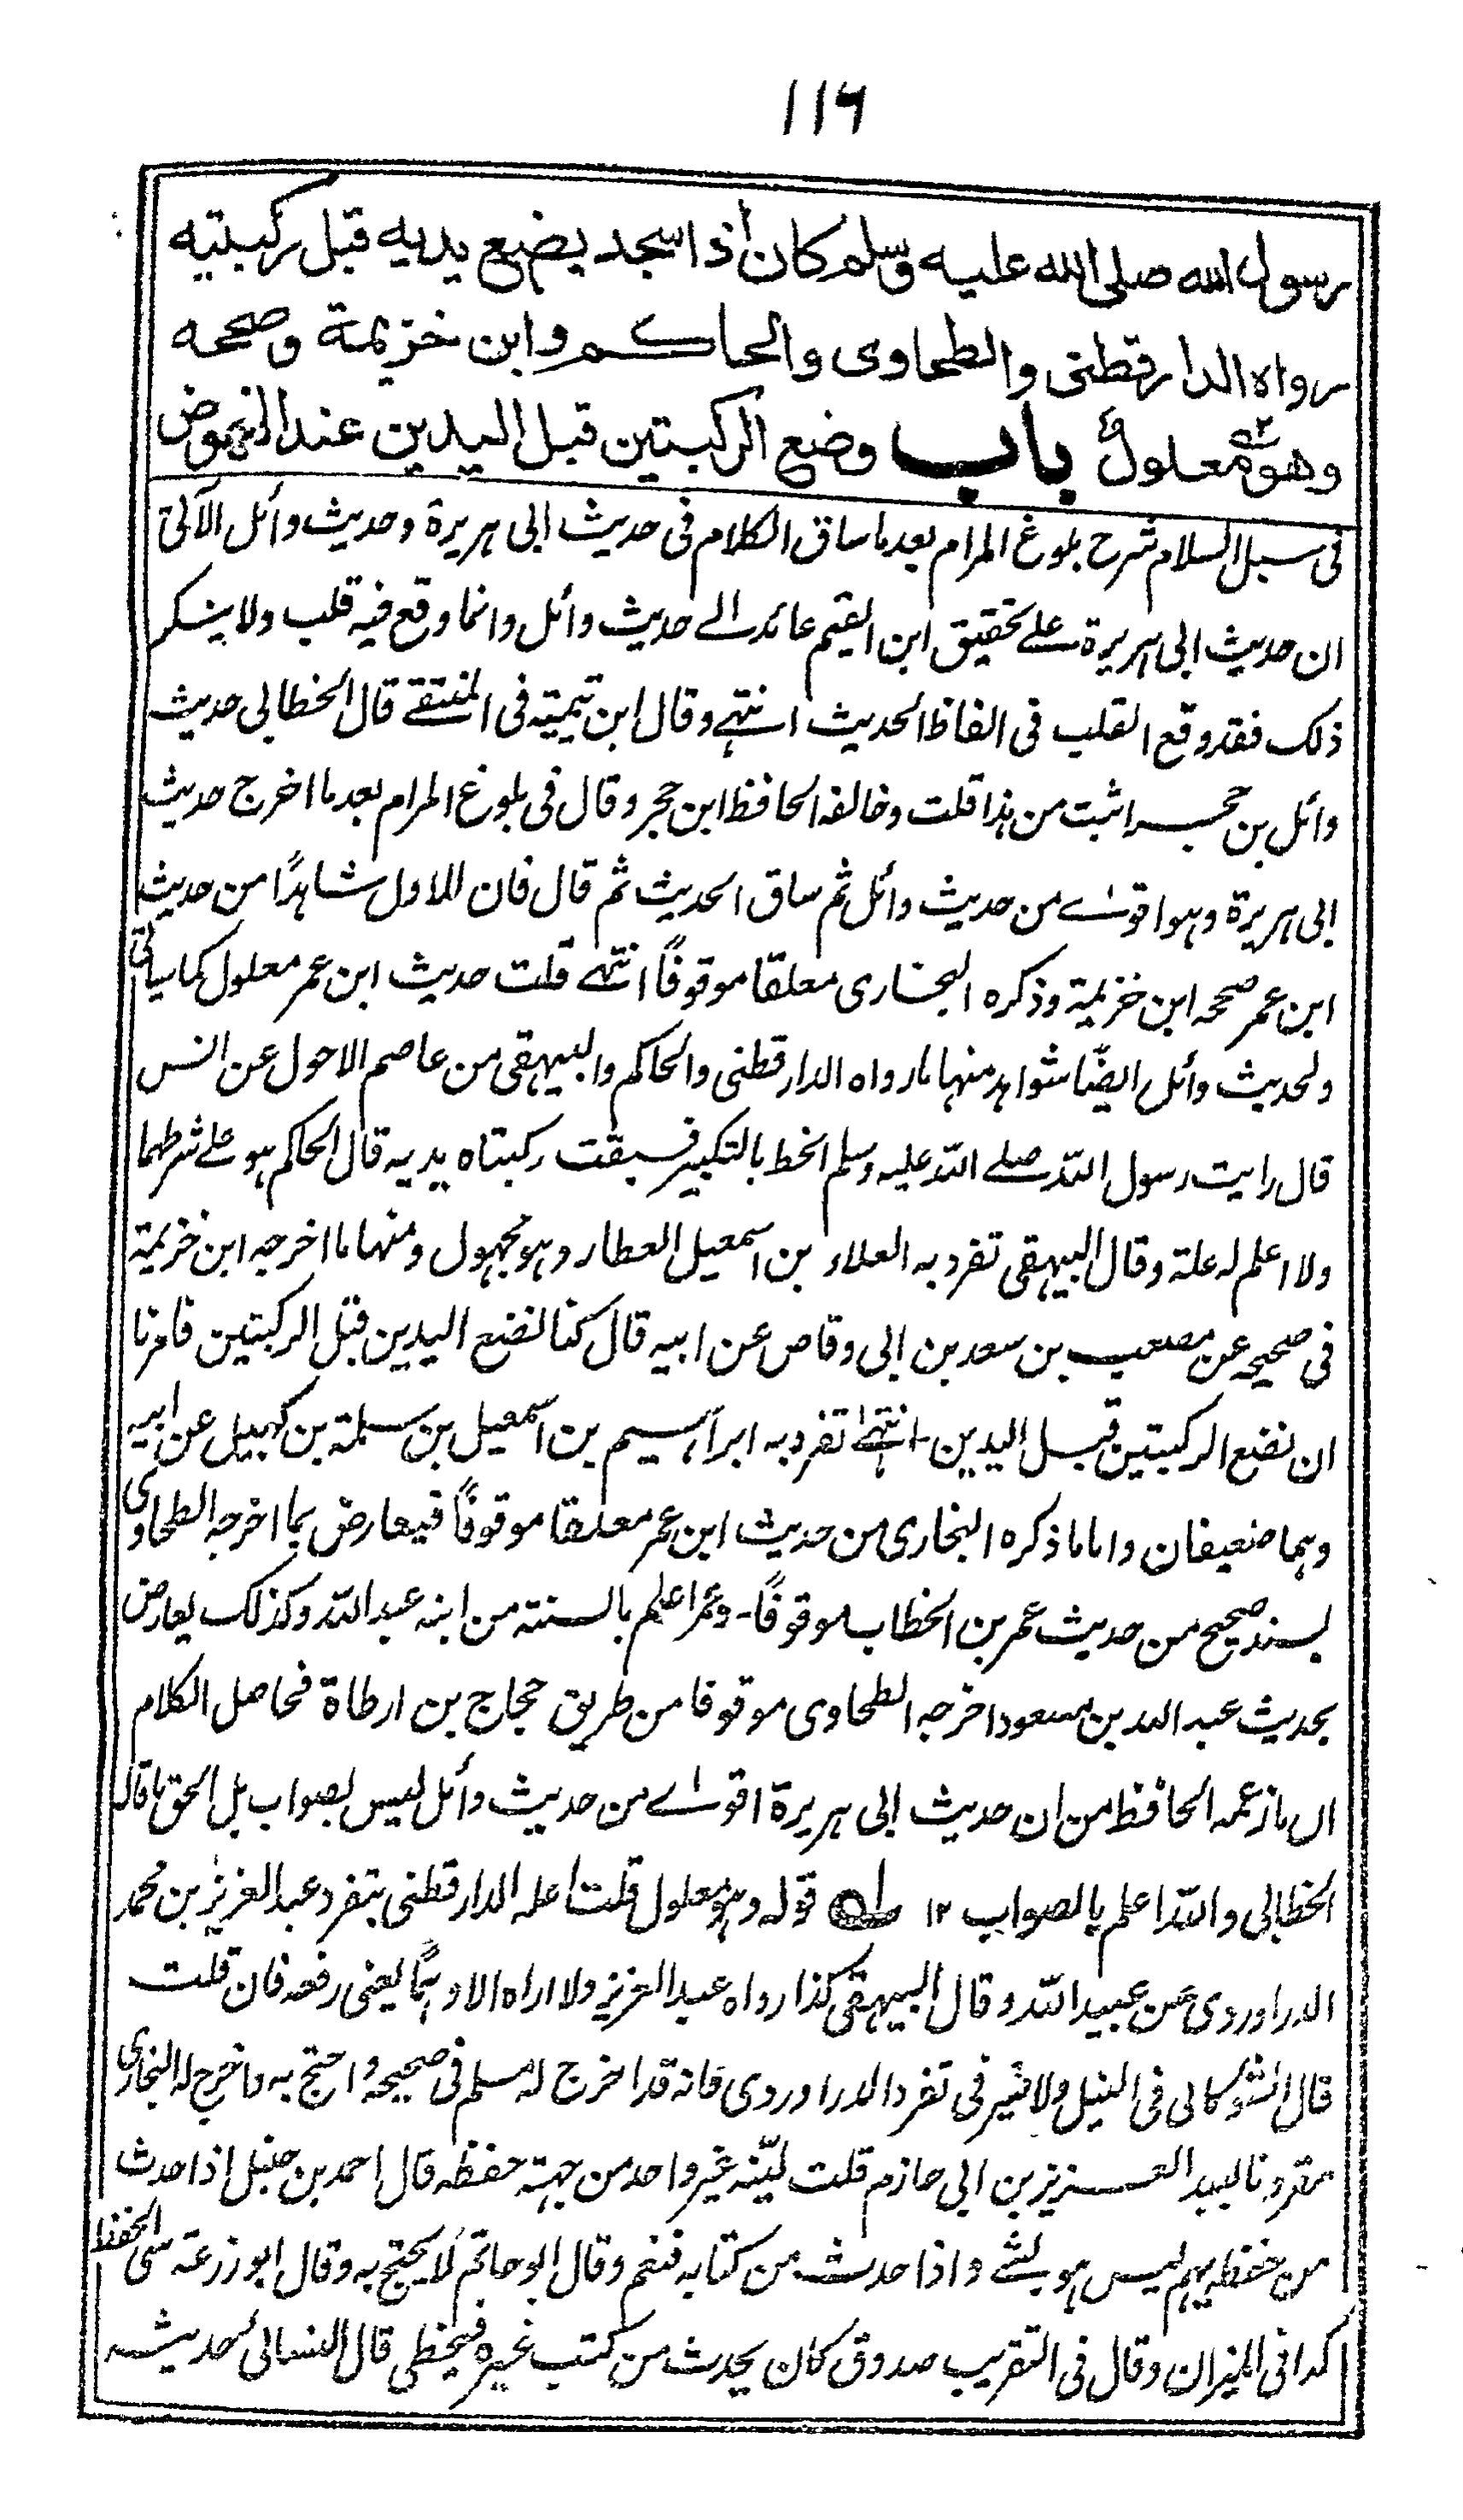 ۱۱۶
رسول الله صلى الله عليه وسلم كان اذا سجد يضع يديه قبل ركبتيه
رواه الدارقطني والطحاوى والحاكم وابن خزيمة وصححه
وهو معلول باب وضع الركبتين قبل اليدين عند النهوض
فى سبل السلام شرح بلوغ المرام بعد ما ساق الكلام فى حديث ابى هريرة وحديث وائل الآتى
ان حديث ابى هريرة على تحقيق ابن القيم عائد الى حديث وائل وانما وقع فيه قلب ولا ينكر
ذلك فقد وقع القلب فى الفاظ الحديث انتهى وقال ابن تيمية فى المنتقى قال الخطابى حديث
وائل بن حجر اثبت من هذا قلت وخالفه الحافظ ابن حجر وقال فى بلوغ المرام بعد ما اخرج حديث
ابى هريرة وهو اقوى من حديث وائل ثم ساق الحديث ثم قال فان للاول شاهدًا من حديث
ابن عمر صححه ابن خزيمة وذكره البخارى معلقا موقوفًا انتهى قلت حديث ابن عمر معلول كما سياتى
ولحديث وائل ايضًا شواهد منها ما رواه الدارقطنى والحاكم والبيهقى من عاصم الاحول عن انس
قال رايت رسول الله صلى الله عليه وسلم انحط بالتكبير فسبقت ركبتاه يديه قال الحاكم هو على شرطهما
ولا اعلم له علة وقال البيهقى تفرد به العلاء بن اسمعيل العطار وهو مجهول ومنها ما اخرجه ابن خزيمة
فى صحيحه عن مصعب بن سعد بن ابى وقاص عن ابيه قال كنا نضع اليدين قبل الركبتين فامرنا
ان نضع الركبتين قبل اليدين - انتهى تفرد به ابراهيم بن اسمعيل بن سلمة بن كهيل عن ابيه
وهما ضعيفان واما ما ذكره البخارى من حديث ابن عمر معلقا موقوفًا فيعارض بما اخرجه الطحاوى
بسند صحيح من حديث عمر بن الخطاب موقوفًا - وعمر اعلم بالسنة من ابنه عبد الله وكذلك يعارض
بحديث عبد الله بن مسعود اخرجه الطحاوى موقوفا من طريق حجاج بن ارطاة فحاصل الكلام
ان ما زعمه الحافظ من ان حديث ابى هريرة اقوى من حديث وائل ليس بصواب بل الحق ما قاله
الخطابى والله اعلم بالصواب ۱۲ قوله وهو معلول قلت اعله الدارقطنى بتفرد عبد العزيز بن محمد
الدراوردى عن عبيد الله وقال البيهقى كذا رواه عبد العزيز ولا اراه الا وهمًا يعنى رفعه فان قلت
قال الشوكانى فى النيل ولا ضير فى تفرد الدراوردى فانه قد اخرج له مسلم فى صحيحه واحتج به واخرج له البخارى
مقرونا بعبد العزيز بن ابى حازم قلت ليّنه غير واحد من جهة حفظه قال احمد بن حنبل اذا حدث
من حفظه يهم ليس هو بشئ واذا حدث من كتابه فنعم وقال ابو حاتم لا يحتج به وقال ابو زرعة سئ الحفظ
كذا فى الميزان وقال فى التقريب صدوق كان يحدث من كتب غيره فيخطى قال النسائى حديثه